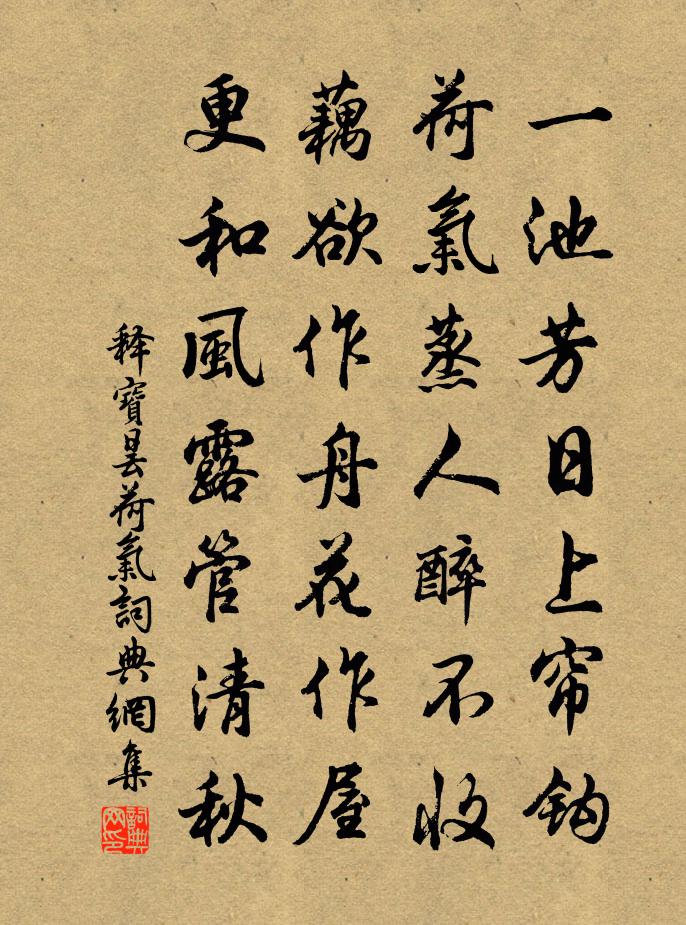 一池芳日上帘鈎
荷氣蒸人醉不收
藕欲作舟花作屋
更和風露管清秋
释寶曇荷氣詞典網集
詞典網印